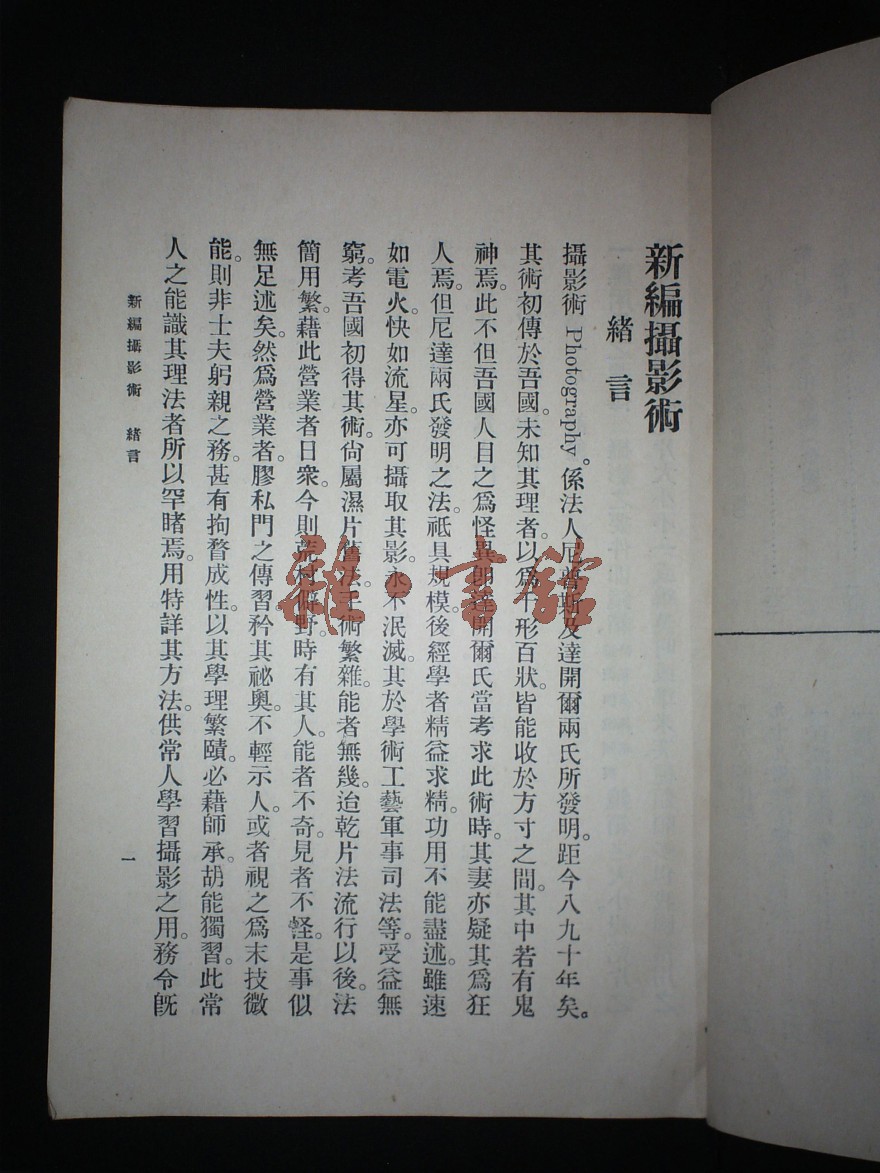 新編攝影術
緒言
攝影術 Photography。係法人尼普斯及達開爾兩氏所發明。距今八九十年矣。
其術初傳於吾國。未知其理者。以為千形百狀。皆能收於方寸之間。其中若有鬼
神焉。此不但吾國人目之爲怪異。卽達開爾氏當考求此術時。其妻亦疑其爲狂
人焉。但尼達兩氏發明之法。祗具規模。後經學者精益求精。功用不能盡述。雖速
如電火。快如流星。亦可攝取其影。永不泯滅。其於學術工藝軍事司法等。受益無
窮。考吾國初得其術。尙屬濕片舊法。手術繁雜。能者無幾。迨乾片法流行以後。法
簡用繁。藉此營業者日衆。今則荒村僻野。時有其人。能者不奇。見者不怪。是事似
無足述矣。然爲營業者。膠私門之傳習。矜其祕奧。不輕示人。或者視之爲末技微
能。則非士夫躬親之務。甚有拘瞀成性。以其學理繁賾。必藉師承。胡能獨習。此常
人之能識其理法者。所以罕睹焉。用特詳其方法。供常人學習攝影之用。務令旣
新編攝影術 緒言
一
雜·書館